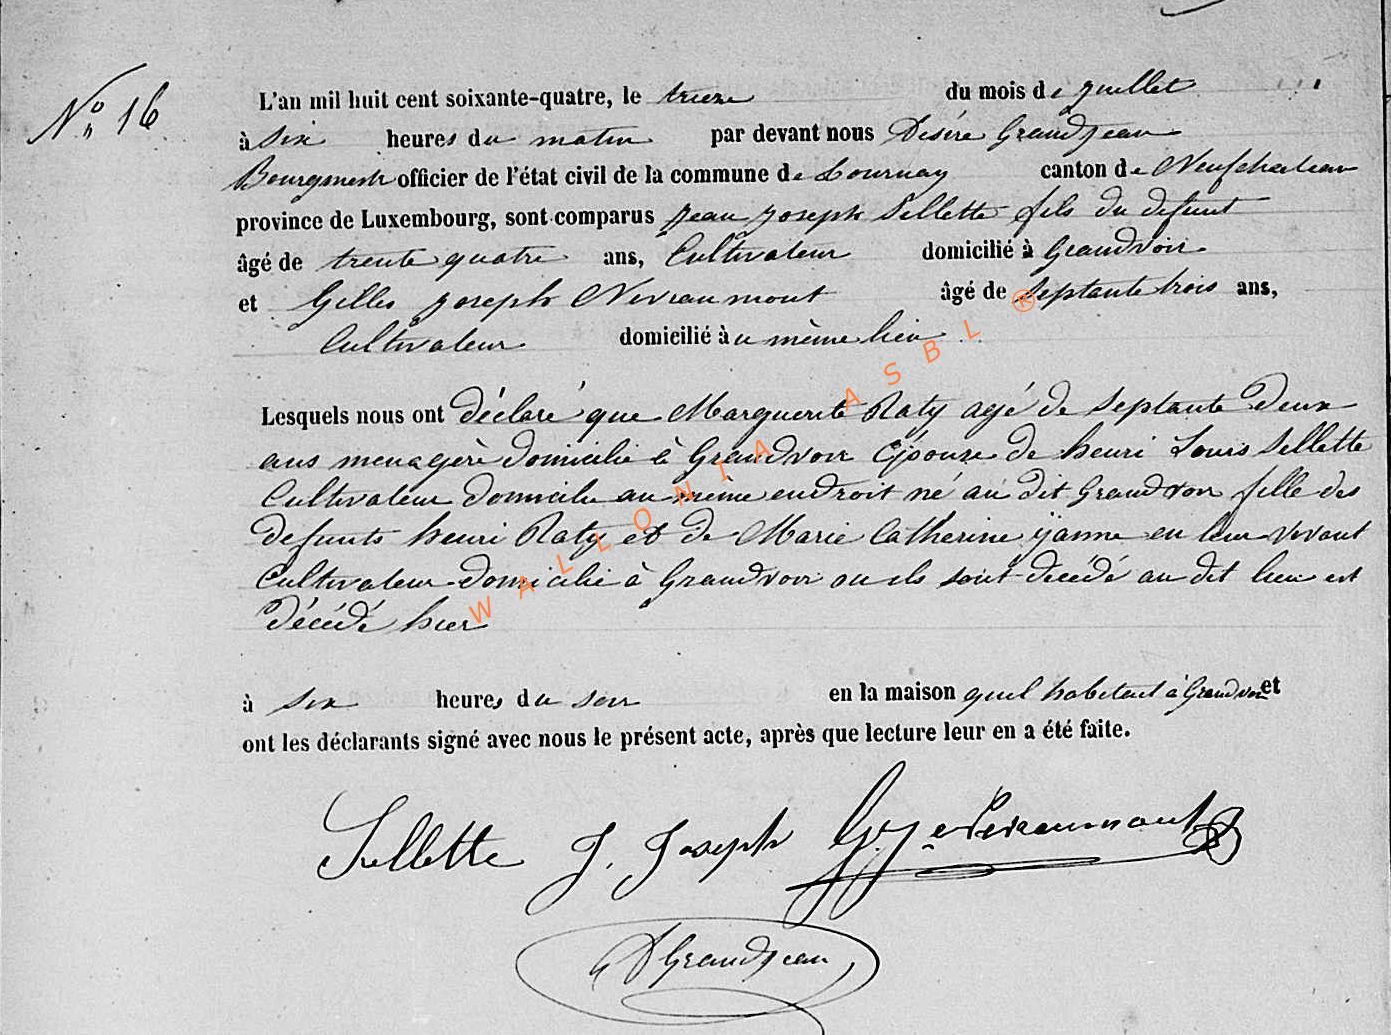 No 16
L'an mil huit cent soixante-quatre, le treize du mois de juillet
à six heures du matin par devant nous Désiré Grandjean
Bourgmestre officier de l'état civil de la commune de Tournay canton de Neufchateau
province de Luxembourg, sont comparus Jean Joseph Sellette fils du defunt
âgé de trente quatre ans, Cultivateur domicilié à Grandvoir
et Gilles Joseph Nevraumont âgé de septante trois ans,
Cultivateur domicilié au même lieu
Lesquels nous ont déclaré que Marguerite Raty agé de septante deux
ans menagère domicilié à Grandvoir Épouse de henri Louis Sellette
Cultivateur domicilié au même endroit né au dit Grandvoir fille des
defunts henri Raty et de Marie Catherine
en leur vivant
Cultivateur domicilié à Grandvoir ou ils sont decédé au dit lieu est
décédé hier
à six heures du soir en la maison quel habitait à Grandvoir et
ont les déclarants signé avec nous le présent acte, après que lecture leur en a été faite.
Sellette J. Joseph G. J. Nevraumont
D Grandjean
WALLONIA ASBL ®